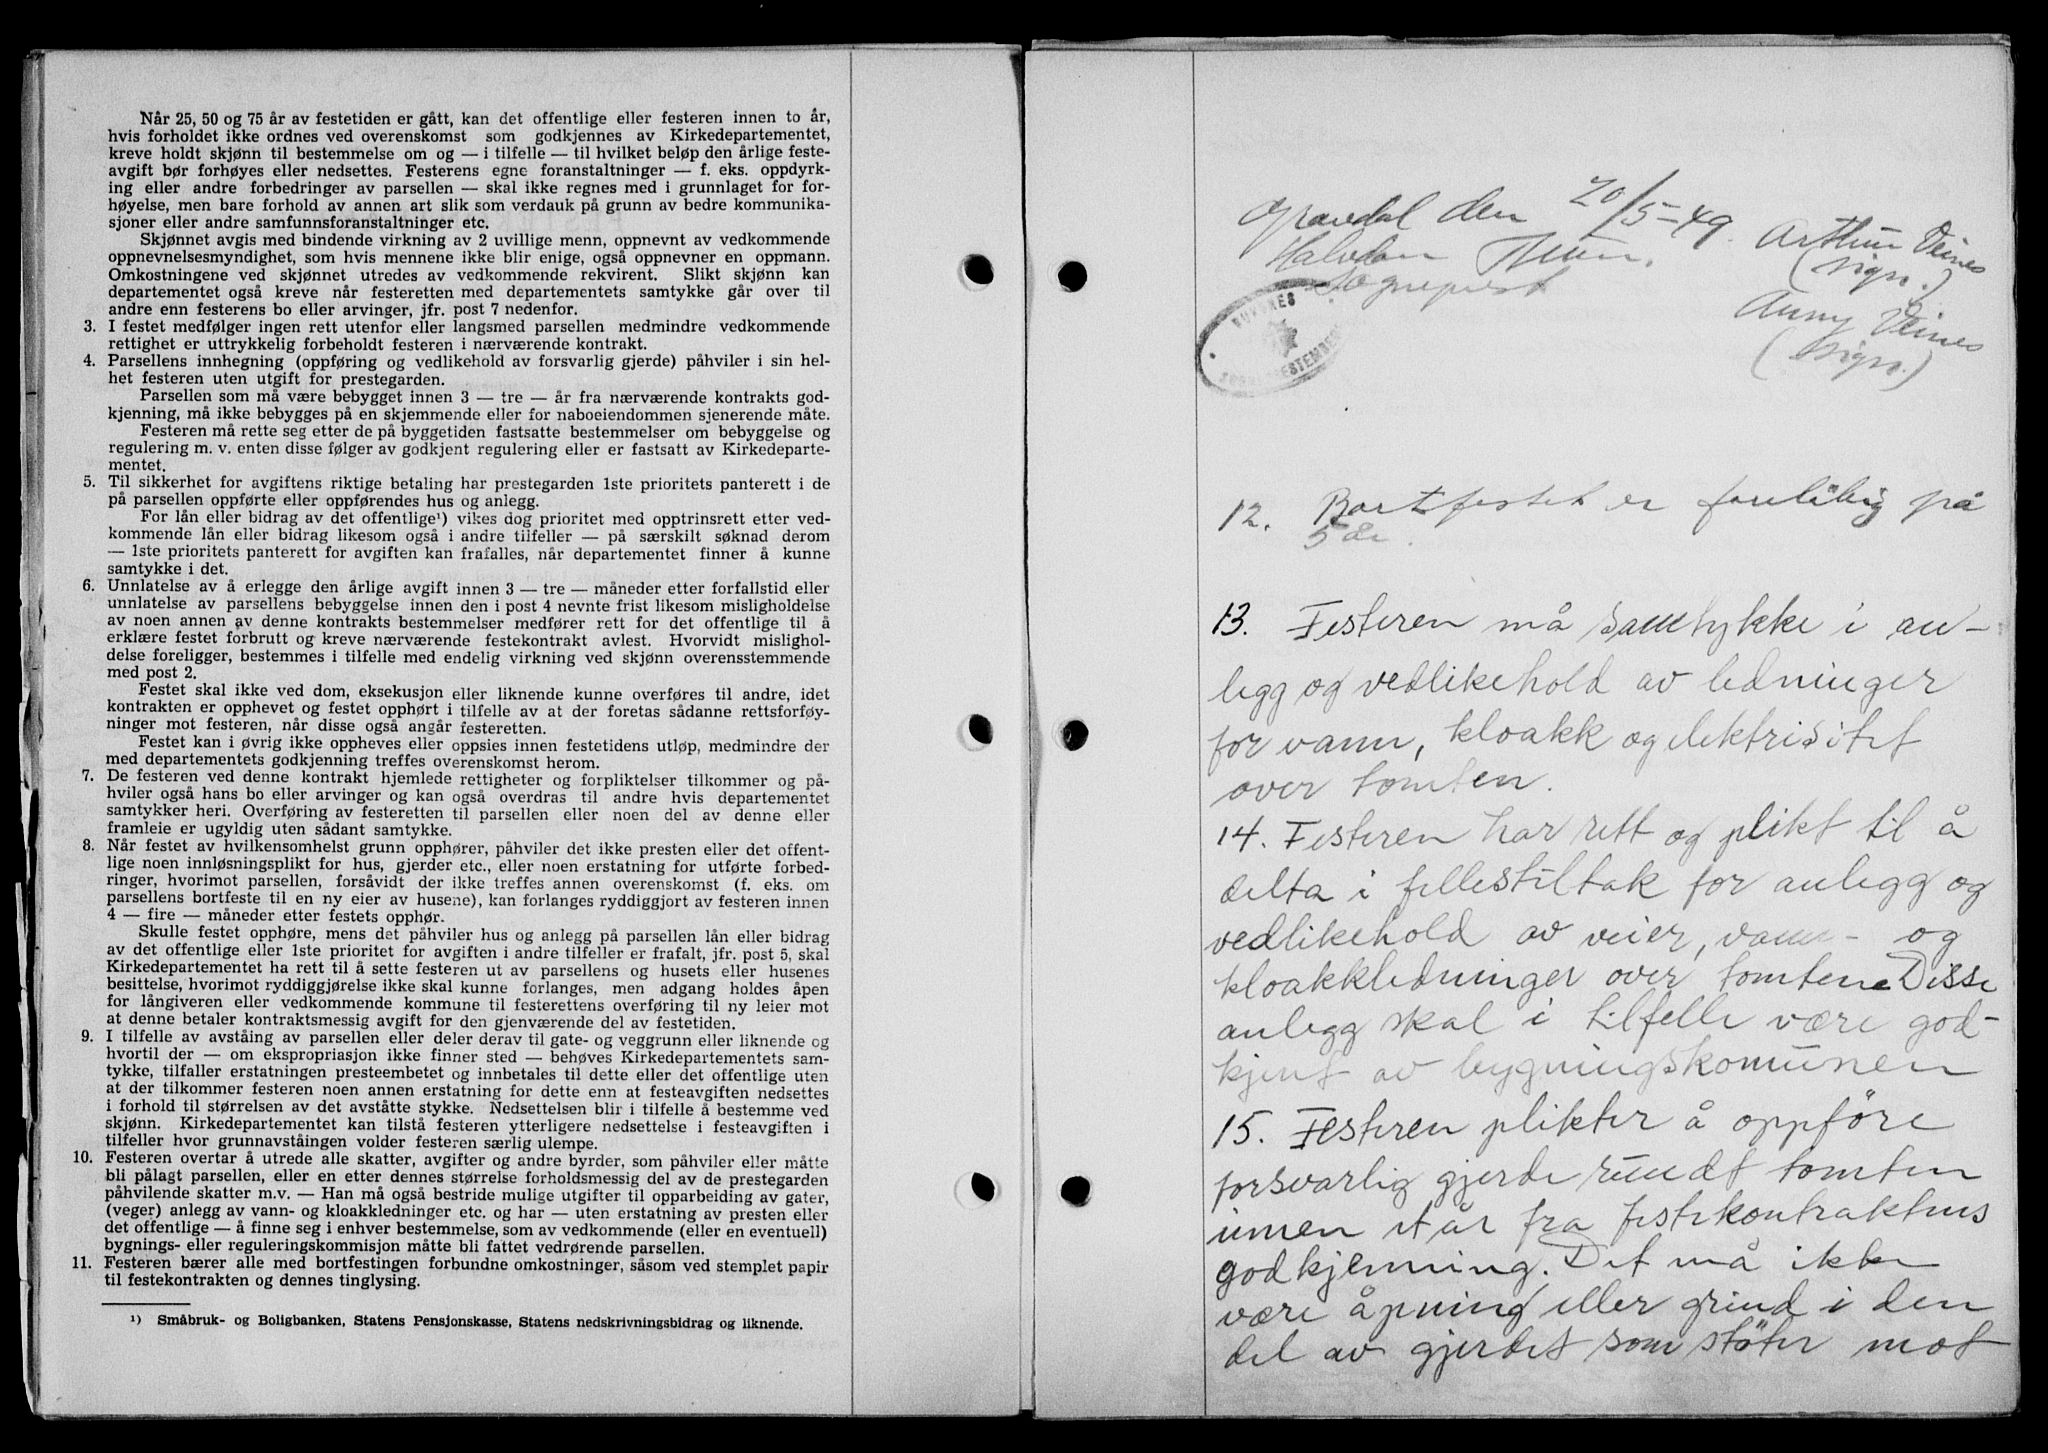 Når 25, 50 og 75 år av festetiden er gått, kan det offentlige eller festeren innen to år,
hvis forholdet ikke ordnes ved overenskomst som godkjennes av Kirkedepartementet,
kreve holdt skjønn til bestemmelse om og — i tilfelle — til hvilket beløp den årlige feste-
avgift bør forhøyes eller nedsettes. Festerens egne foranstaltninger — f. eks. oppdyrk-
ing eller andre forbedringer av parsellen — skal ikke regnes med i grunnlaget for for-
høyelse, men bare forhold av annen art slik som verdauk på grunn av bedre kommunika-
sjoner eller andre samfunnsforanstaltninger etc.
Skjønnet avgis med bindende virkning av 2 uvillige menn, oppnevnt av vedkommende
oppnevnelsesmyndighet, som hvis mennene ikke blir enige, også oppnevner en oppmann.
Omkostningene ved skjønnet utredes av vedkommende rekvirent. Slikt skjønn kan
departementet også kreve når festeretten med departementets samtykke går over til
andre enn festerens bo eller arvinger, jfr. post 7 nedenfor.
3. I festet medfølger ingen rett utenfor eller langsmed parsellen medmindre vedkommende
rettighet er uttrykkelig forbeholdt festeren i nærværende kontrakt.
4. Parsellens innhegning (oppføring og vedlikehold av forsvarlig gjerde) påhviler i sin hel-
het festeren uten utgift for prestegarden.
Parsellen som må være bebygget innen 3 — tre — år fra nærværende kontrakts god-
kjenning, må ikke bebygges på en skjemmende eller for naboeiendommen sjenerende måte.
Festeren må rette seg etter de på byggetiden fastsatte bestemmelser om bebyggelse og
regulering m. v. enten disse følger av godkjent regulering eller er fastsatt av Kirkedeparte-
mentet.
5. Til sikkerhet for avgiftens riktige betaling har prestegarden 1ste prioritets panterett i de
på parsellen oppførte eller oppførendes hus og anlegg.
For lån eller bidrag av det offentlige¹) vikes dog prioritet med opptrinsrett etter ved-
kommende lån eller bidrag likesom også i andre tilfeller — på særskilt søknad derom
— 1ste prioritets panterett for avgiften kan frafalles, når departementet finner å kunne
samtykke i det.
6. Unnlatelse av å erlegge den årlige avgift innen 3 — tre — måneder etter forfallstid eller
unnlatelse av parsellens bebyggelse innen den i post 4 nevnte frist likesom misligholdelse
av noen annen av denne kontrakts bestemmelser medfører rett for det offentlige til å
erklære festet forbrutt og kreve nærværende festekontrakt avlest. Hvorvidt misligho-
ldelse foreligger, bestemmes i tilfelle med endelig virkning ved skjønn overensstemmende
med post 2.
Festet skal ikke ved dom, eksekusjon eller liknende kunne overføres til andre, idet
kontrakten er opphevet og festet opphørt i tilfelle av at der foretas sådanne rettsforføy-
ninger mot festeren, når disse også angår festeretten.
Festet kan i øvrig ikke oppheves eller oppsies innen festetidens utløp, medmindre der
med departementets godkjenning treffes overenskomst herom.
7. De festeren ved denne kontrakt hjemlede rettigheter og forpliktelser tilkommer og på-
hviler også hans bo eller arvinger og kan også overdras til andre hvis departementet
samtykker heri. Overføring av festeretten til parsellen eller noen del av denne eller
framleie er ugyldig uten sådant samtykke.
8. Når festet av hvilkensomhelst grunn opphører, påhviler det ikke presten eller det offent-
lige noen innløsningsplikt for hus, gjerder etc., eller noen erstatning for utførte forbed-
ringer, hvorimot parsellen, forsåvidt der ikke treffes annen overenskomst (f. eks. om
parsellens bortfeste til en ny eier av husene), kan forlanges ryddiggjort av festeren innen
4 — fire — måneder etter festets opphør.
Skulle festet opphøre, mens det påhviler hus og anlegg på parsellen lån eller bidrag
av det offentlige eller 1ste prioritet for avgiften i andre tilfeller er frafalt, jfr. post 5, skal
Kirkedepartementet ha rett til å sette festeren ut av parsellens og husets eller husenes
besittelse, hvorimot ryddiggjørelse ikke skal kunne forlanges, men adgang holdes åpen
for långiveren eller vedkommende kommune til festerettens overføring til ny leier mot
at denne betaler kontraktsmessig avgift for den gjenværende del av festetiden.
9. I tilfelle av avståing av parsellen eller deler derav til gate- og veggrunn eller liknende og
hvortil der — om ekspropriasjon ikke finner sted — behøves Kirkedepartementets sam-
tykke, tilfaller erstatningen presteembetet og innbetales til dette eller det offentlige uten
at der tilkommer festeren noen annen erstatning for dette enn at festeavgiften nedsettes
i forhold til størrelsen av det avståtte stykke. Nedsettelsen blir i tilfelle å bestemme ved
skjønn. Kirkedepartementet kan tilstå festeren ytterligere nedsettelse i festeavgiften i
tilfeller hvor grunnavståingen volder festeren særlig ulempe.
10. Festeren overtar å utrede alle skatter, avgifter og andre byrder, som påhviler eller måtte
bli pålagt parsellen, eller en etter dennes størrelse forholdsmessig del av de prestegarden
påhvilende skatter m.v. — Han må også bestride mulige utgifter til opparbeiding av gater,
(veger) anlegg av vann- og kloakkledninger etc. og har — uten erstatning av presten eller
det offentlige — å finne seg i enhver bestemmelse, som av vedkommende (eller en eventuell)
bygnings- eller reguleringskommisjon måtte bli fattet vedrørende parsellen.
11. Festeren bærer alle med bortfestingen forbundne omkostninger, såsom ved stemplet papir
til festekontrakten og dennes tinglysing.
¹) Småbruk- og Boligbanken, Statens Pensjonskasse, Statens nedskrivningsbidrag og liknende.
Gravdal den 20/5-49.
Halvdan
Sogneprest
BUKSNES
Arthur Veines
(sign.)
Anny Veines
(sign.)
12. Bortfestet er foreløbig på
5 år.
13. Festeren må samtykke i an-
legg og vedlikehold av ledninger
for vann, kloakk og elektrisitet
over tomten.
14. Festeren har rett og plikt til å
delta i fellestiltak for anlegg og
vedlikehold av veier, vann- og
kloakkledninger over tomtene Disse
anlegg skal i tilfelle være god-
kjent av bygningskomunen
15. Festeren plikter å oppföre
forsvarlig gjerde rundt tomten
innen et år fra festekontraktens
godkjenning. Det må ikke
være åpning eller grind i den
del av gjerdet som støter mot